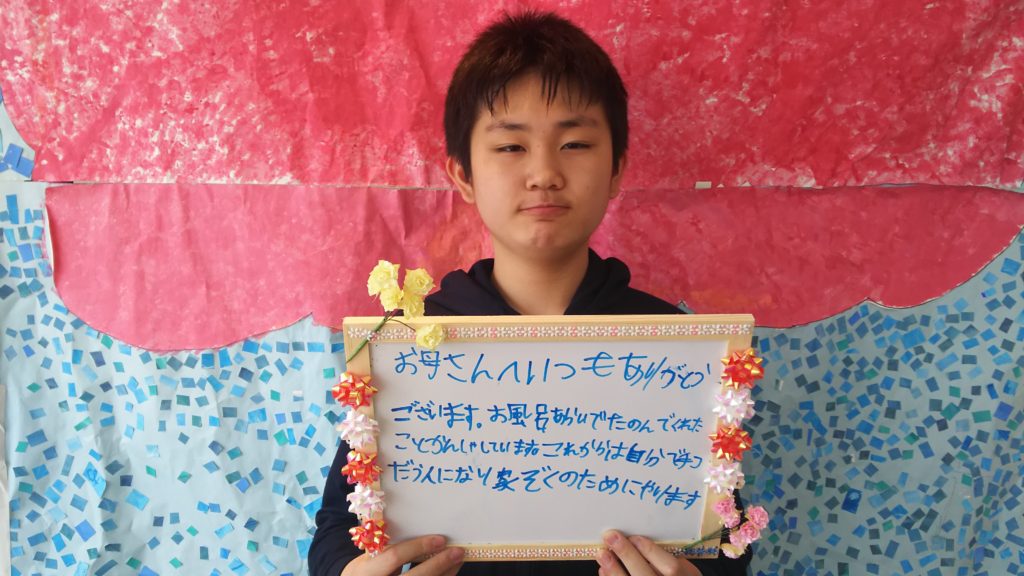 お母さんへいつもありがとう
ございます。お風呂 でたのんでくれた
ことかんしゃしています。これからは自分で
になり家ぞくのためにやります